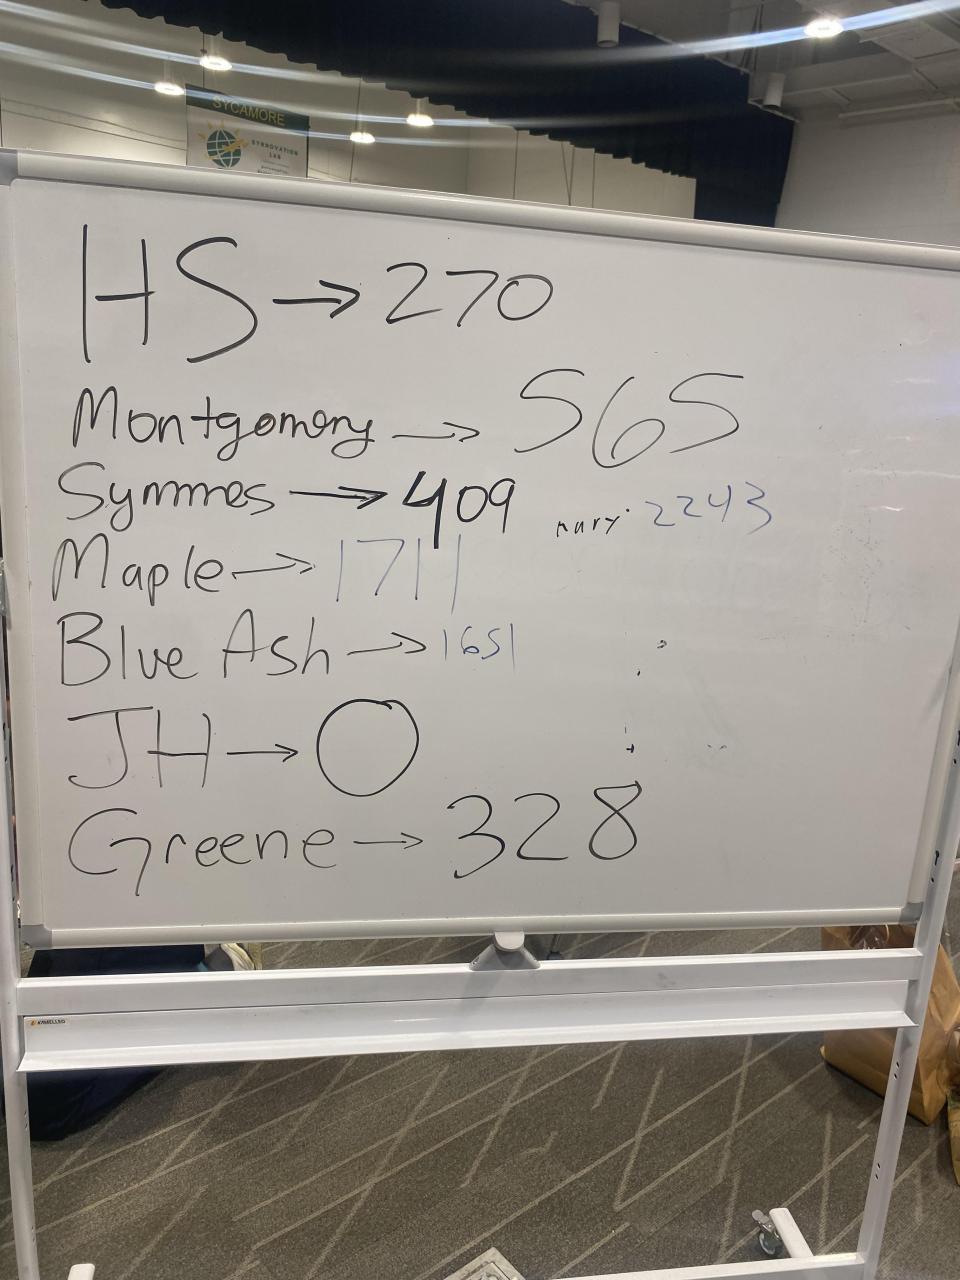 SYCAMORE
SYNNOVATION
LAB
HS → 270
Montgomery → 565
Symmes → 409
nury. 2243
Maple → 1711
Blue Ash → 1651
JH → 0
Greene → 328